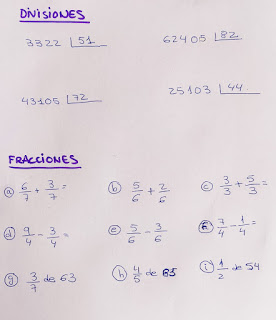 DIVISIONES
3322 |51 62405 |82
43105 |72 25103 |44
FRACCIONES
a) 6/7 + 3/7 = b) 5/6 + 2/6 c) 3/3 + 5/3 =
d) 9/4 - 3/4 = e) 5/6 - 3/6 f) 7/4 - 1/4 =
g) 3/7 de 63 h) 4/5 de 65 i) 1/2 de 54